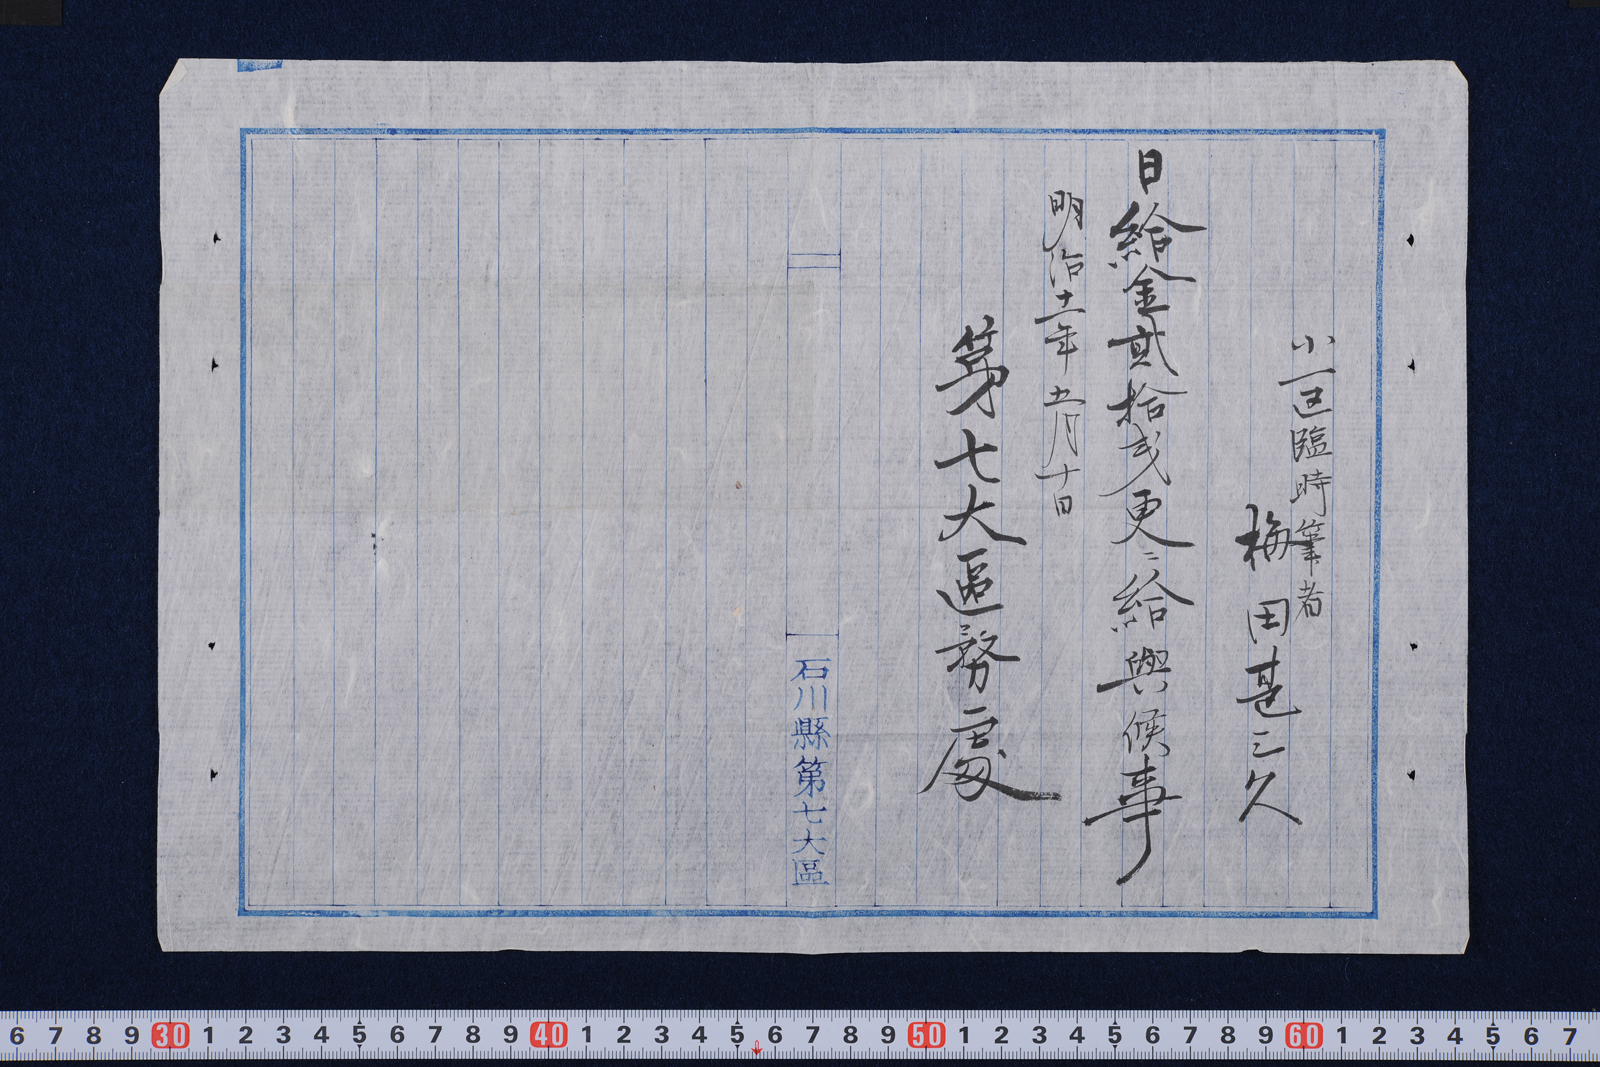 小一区臨時筆者
梅田甚三久
日給金貳拾戔更ニ給與候事
明治十一年五月十日
第七大區務處
石川縣第七大區
6 7 8 9 30 1 2 3 4 5 6 7 8 9 40 1 2 3 4 5 6 7 8 9 50 1 2 3 4 5 6 7 8 9 60 1 2 3 4 5 6 7